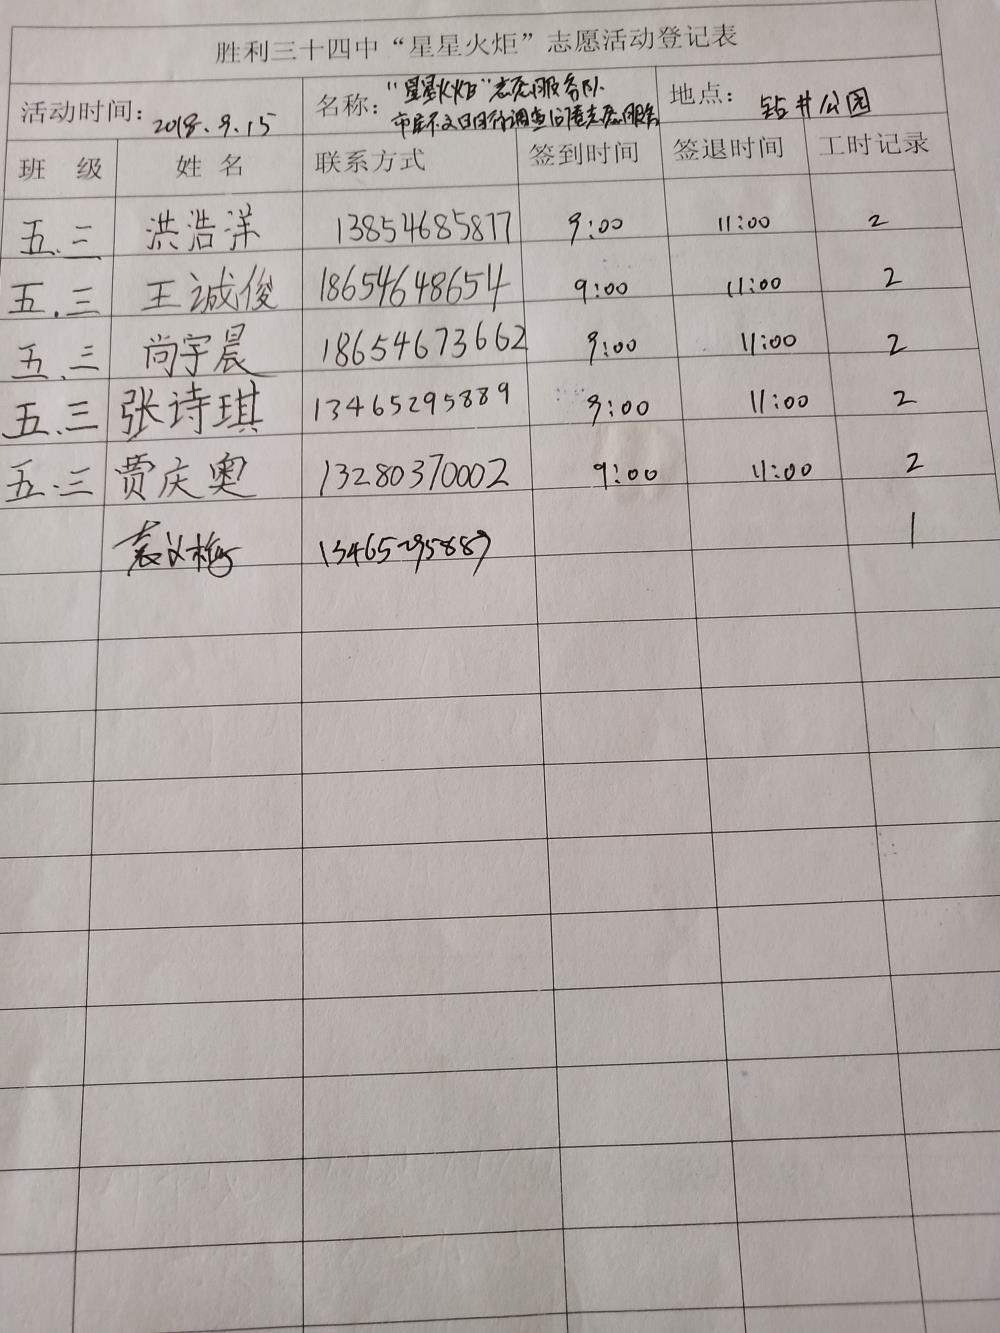 胜利三十四中“星星火炬”志愿活动登记表
活动时间: 2018.9.15 名称: “星星火炬”志愿服务队 地点: 钻井公园
市民不文明行为调查问卷志愿服务
班 级 姓 名 联系方式 签到时间 签退时间 工时记录
五.三 洪浩洋 13854685877 9:00 11:00 2
五.三 王诚俊 18654648654 9:00 11:00 2
五.三 尚宇晨 18654673662 9:00 11:00 2
五.三 张诗琪 13465295889 9:00 11:00 2
五.三 贾庆奥 13280370002 9:00 11:00 2
袁 梅 13465295889 1